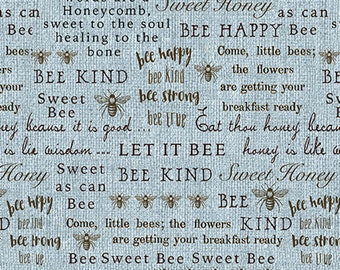 Honeycomb,
sweet to the soul
healing to the
bone
Sweet Honey
as can
Bee
BEE HAPPY
bee happy
bee kind
bee strong
bee true
Come, little bees;
the flowers
are getting your
breakfast ready
BEE KIND
Sweet
Bee
honey because it is good...
Eat thou honey because
is like wisdom...
LET IT BEE
honey is like
Honey
Sweet
as can
Bee
BEE KIND
Sweet Honey
bee happy
bee kind
bee strong
bee true
BEE
KIND
bee happy
bee kind
bee strong
bee true
Come, little bees; the flowers
are getting your breakfast ready
Bee Sweet Bee Sweet Bee